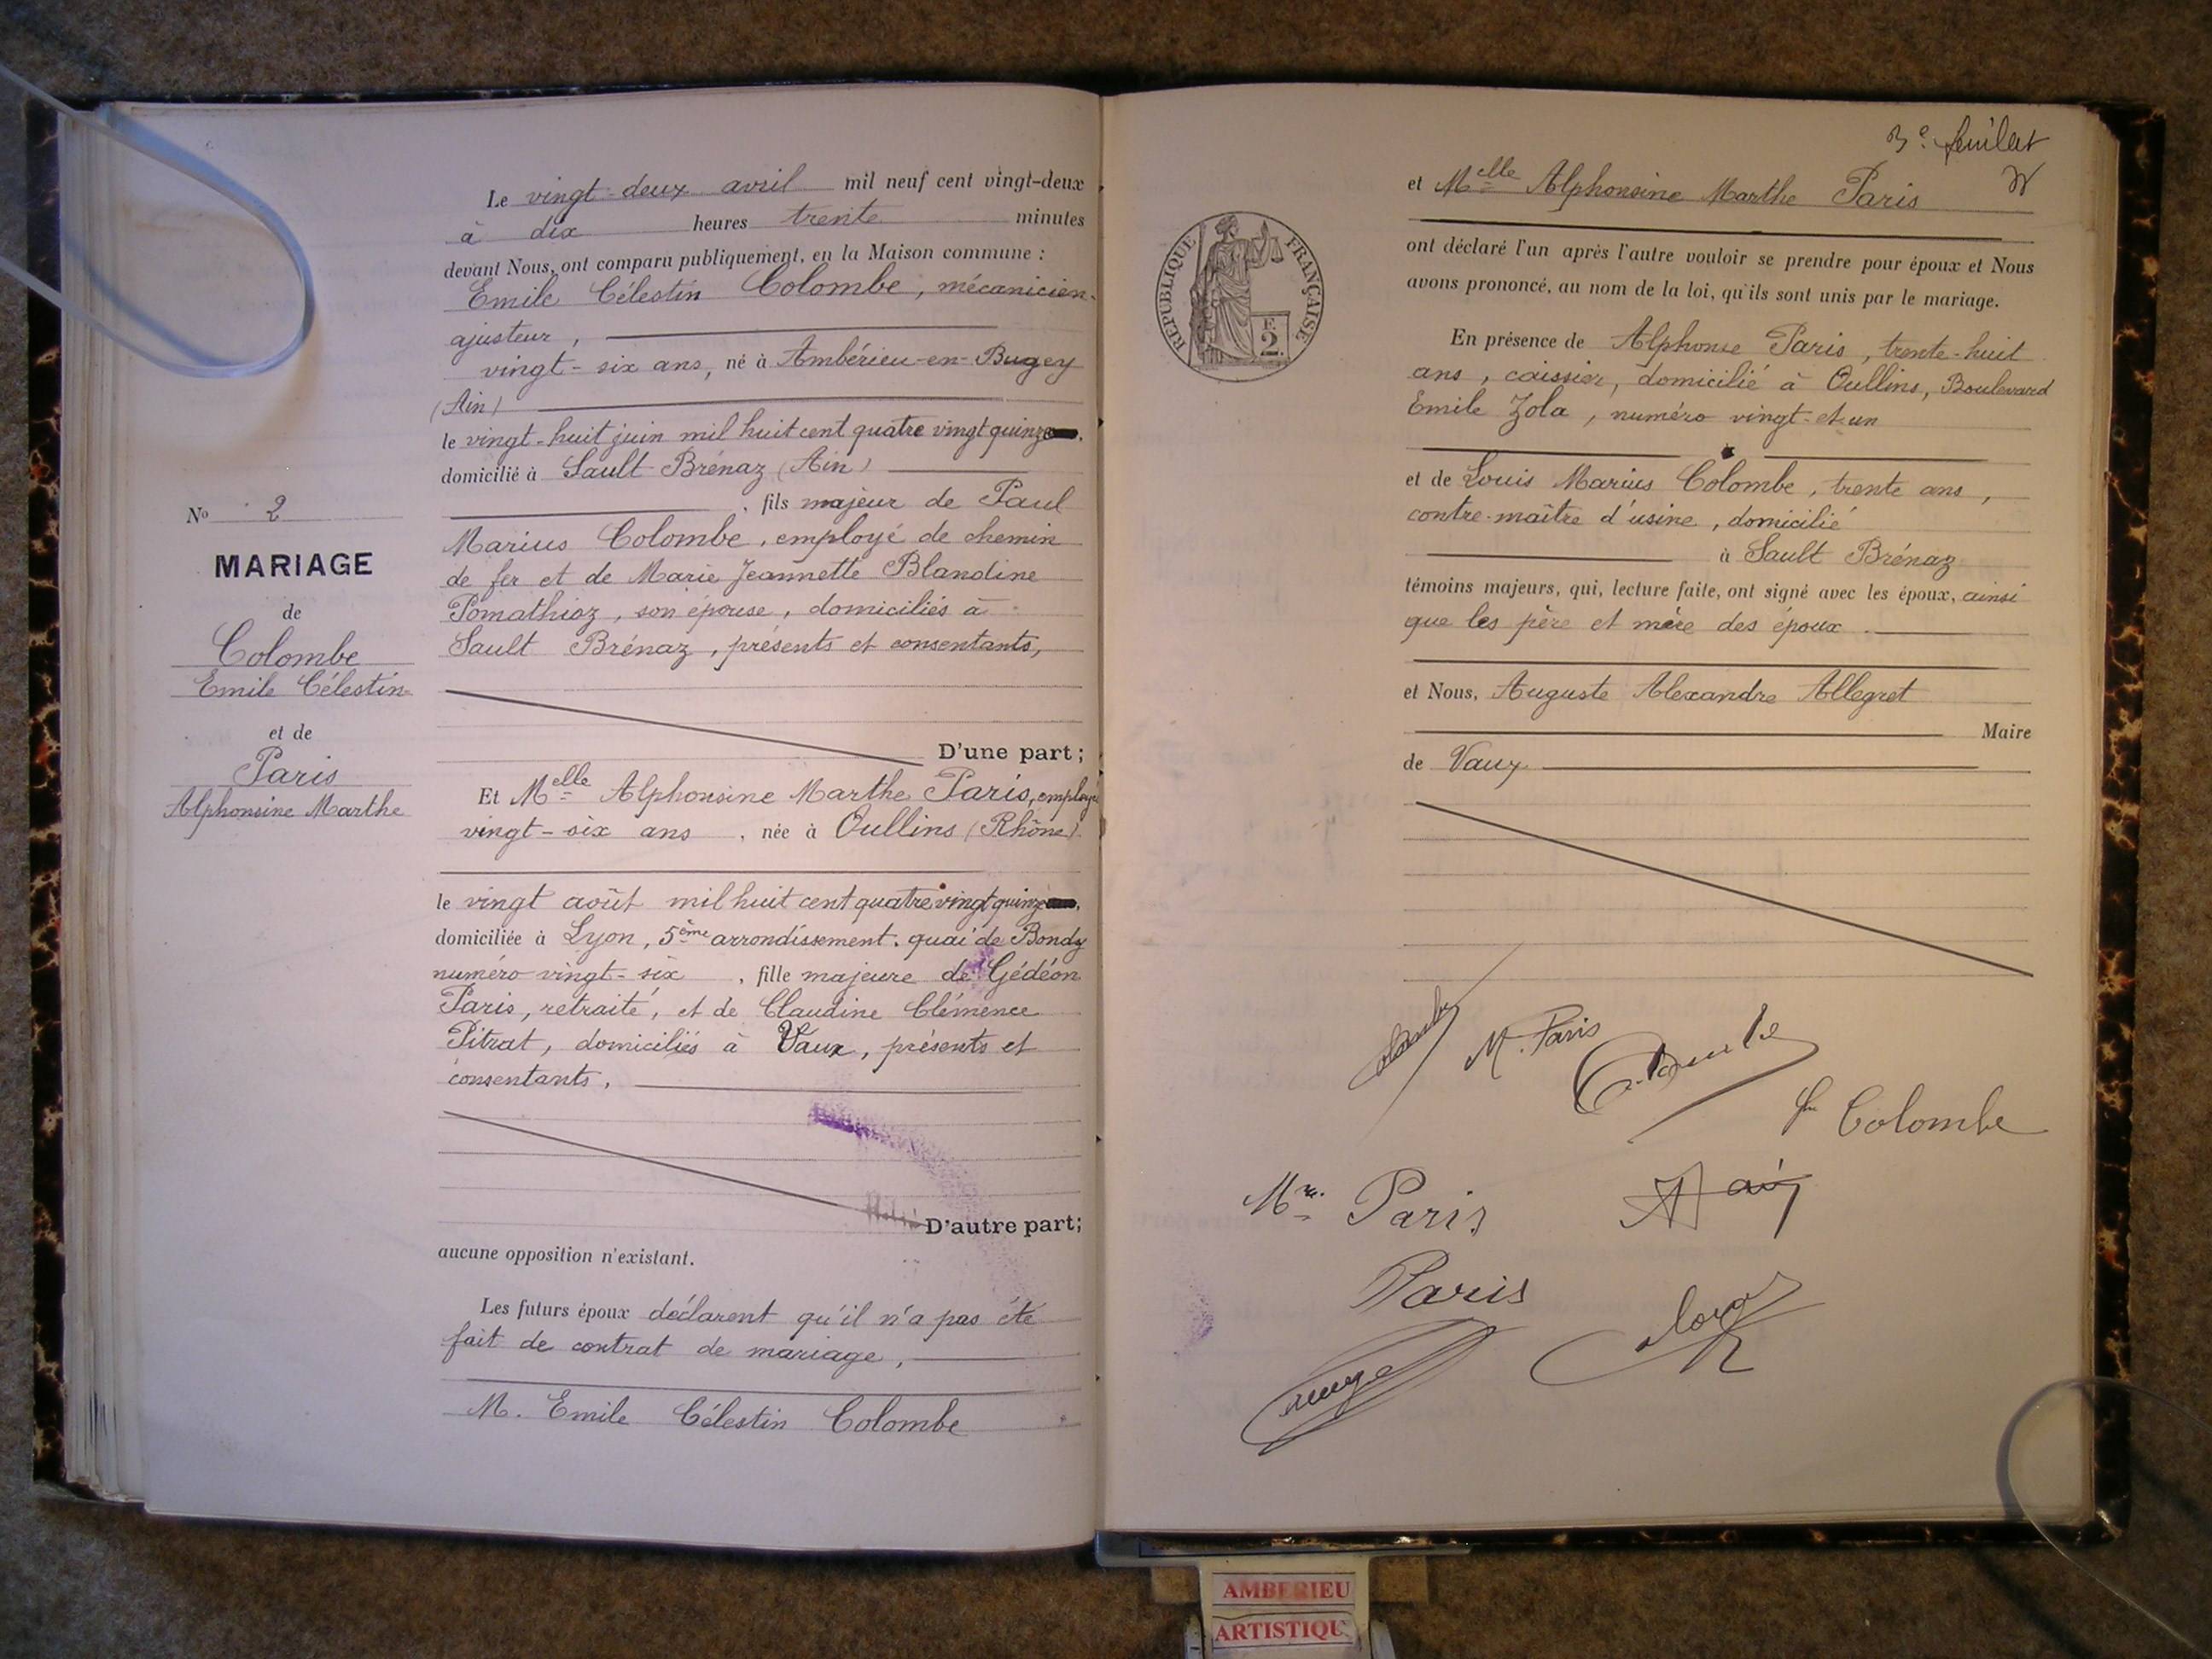 Le vingt-deux avril mil neuf cent vingt-deux
à dix heures trente minutes
devant Nous, ont comparu publiquement, en la Maison commune :
Emile Célestin Colombe, mécanicien-
ajusteur,
vingt-six ans, né à Ambérieu-en-Bugey
(Ain)
le vingt-huit juin mil huit cent quatre vingt quinze
domicilié à Sault Brénaz (Ain)
, fils majeur de Paul
Marius Colombe, employé de chemin
de fer et de Marie Jeannette Blandine
Pomathioz, son épouse, domiciliés à
Sault Brénaz, présents et consentants,
D'une part;
Et Melle Alphonsine Marthe Paris, employé
vingt-six ans, née à Oullins (Rhône)
le vingt août mil huit cent quatre vingt quinze
domiciliée à Lyon, 5ème arrondissement, quai de Bondy
numéro vingt-six, fille majeure de Gédéon
Paris, retraité, et de Claudine Clémence
Pitrat, domiciliés à Vaux, présents et
consentants,
D'autre part;
aucune opposition n'existant.
Les futurs époux déclarent qu'il n'a pas été
fait de contrat de mariage,
M. Emile Célestin Colombe
No 2
MARIAGE
de
Colombe
Emile Célestin
et de
Paris
Alphonsine Marthe
3e feuillet
et Melle Alphonsine Marthe Paris
ont déclaré l'un après l'autre vouloir se prendre pour époux et Nous
avons prononcé, au nom de la loi, qu'ils sont unis par le mariage.
En présence de Alphonse Paris, trente-huit
ans, caissier, domicilié à Oullins, Boulevard
Emile Zola, numéro vingt-et-un
et de Louis Marius Colombe, trente ans,
contre-maître d'usine, domicilié
à Sault Brénaz
témoins majeurs, qui, lecture faite, ont signé avec les époux, ainsi
que les père et mère des époux.
et Nous, Auguste Alexandre Allegret
Maire
de Vaux
RÉPUBLIQUE FRANÇAISE
F.
2.
M. Paris
Colombe
Mme Paris
Paris
AMBERIEU
ARTISTIQU